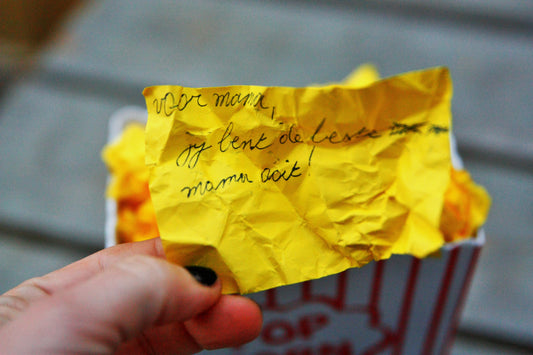 voor mama,
jy bent de beste
mama ooit!
OP